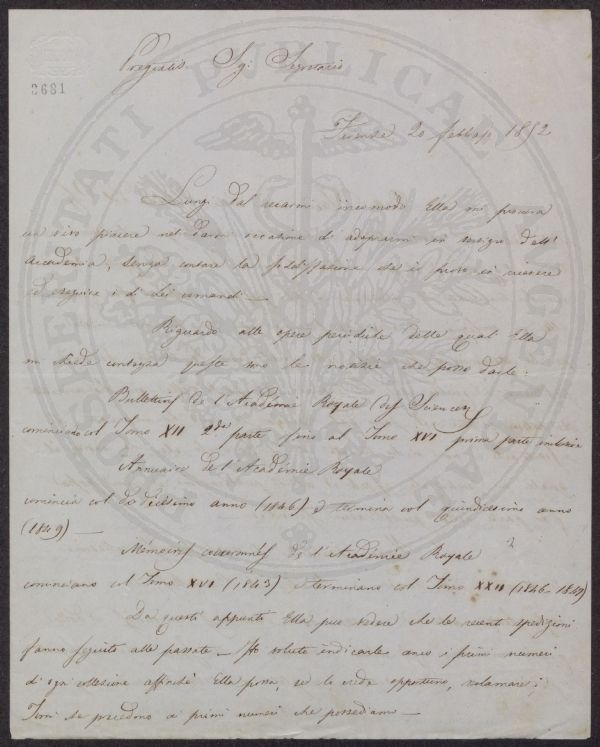 3681
Pregiatis. Sg: Segretario
Firenze 20 febbajo 1852
Lungi dal recarmi incomodo Ella mi procura
un vivo piacere nel darmi occasione di adoprarmi in servizio dell'
Accademia, senza contare la soddisfazione che io provo in ricevere
ed eseguire i di Lei comandi —
Riguardo alle opere periodiche delle quali Ella
mi chiede contezza queste sono le notizie che posso darle:
Bulletins de l'Académie Royale des Sciences
cominciano col Tomo XII 2da parte fino al Tomo XVI prima parte inclusive
Annuaire de l'Académie Royale
comincia col dodicesimo anno (1846) e termina col quindicesimo anno
(1849) —
Mémoires couronnés de l'Académie Royale
cominciano col Tomo XVI (1843) e terminano col Tomo XXII (1846-1849)
Da questi appunti Ella può vedere che le recenti spedizioni
fanno seguito alle passate — Ho voluto indicarle anco i primi numeri
di ogni collezione affinchè Ella possa, se lo crede opportuno, reclamare i
Tomi che precedono ai primi numeri che possediamo —
SOCIETATI PUBLICAE